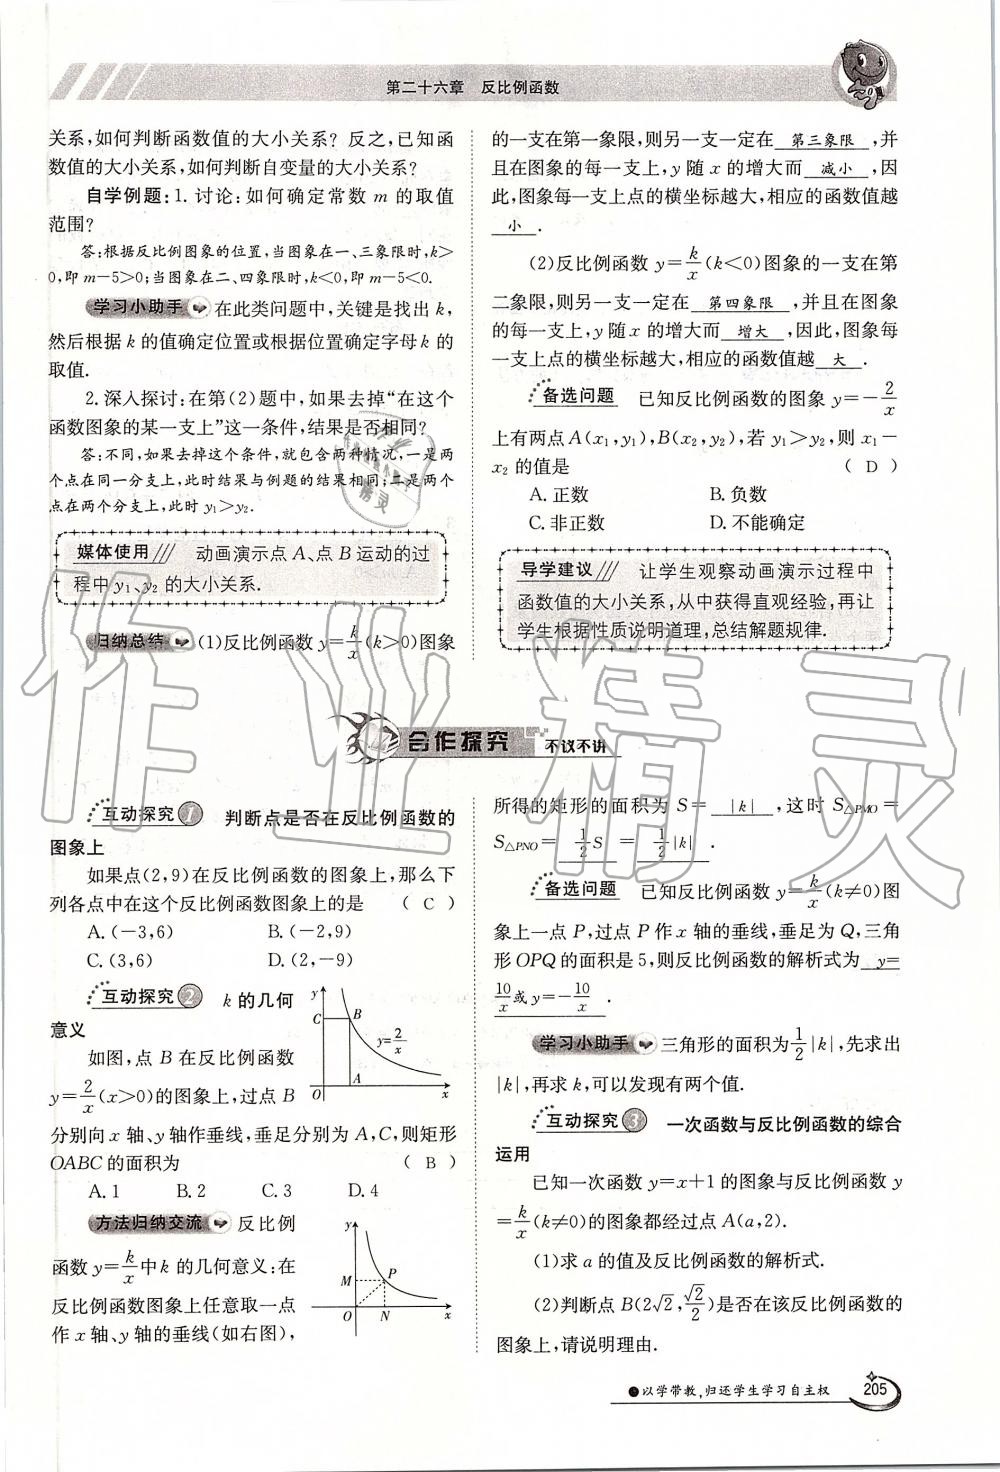 第二十六章　反比例函数
关系,如何判断函数值的大小关系？反之,已知函
数值的大小关系,如何判断自变量的大小关系？
自学例题:1. 讨论:如何确定常数 m 的取值
范围？
答:根据反比例图象的位置,当图象在一、三象限时,k>
0,即 m−5>0;当图象在二、四象限时,k<0,即 m−5<0.
学习小助手 在此类问题中,关键是找出 k,
然后根据 k 的值确定位置或根据位置确定字母 k 的
取值.
2. 深入探讨:在第(2)题中,如果去掉“在这个
函数图象的某一支上”这一条件,结果是否相同？
答:不同,如果去掉这个条件,就包含两种情况,一是两
个点在同一分支上,此时结果与例题的结果相同;二是两个
点在两个分支上,此时 y₁>y₂.
媒体使用 动画演示点 A、点 B 运动的过
程中 y₁、y₂ 的大小关系.
归纳总结 (1)反比例函数 y=k/x(k>0)图象
的一支在第一象限,则另一支一定在 第三象限 ,并
且在图象的每一支上,y 随 x 的增大而 减小 ,因
此,图象每一支上点的横坐标越大,相应的函数值越
小 .
(2)反比例函数 y=k/x(k<0)图象的一支在第
二象限,则另一支一定在 第四象限 ,并且在图象
的每一支上,y 随 x 的增大而 增大 ,因此,图象每
一支上点的横坐标越大,相应的函数值越 大 .
备选问题 已知反比例函数的图象 y=−2/x
上有两点 A(x₁,y₁),B(x₂,y₂),若 y₁>y₂,则 x₁−
x₂ 的值是 ( D )
A. 正数 B. 负数
C. 非正数 D. 不能确定
导学建议 让学生观察动画演示过程中
函数值的大小关系,从中获得直观经验,再让
学生根据性质说明道理,总结解题规律.
合作探究 不议不讲
互动探究 1 判断点是否在反比例函数的
图象上
如果点(2,9)在反比例函数的图象上,那么下
列各点中在这个反比例函数图象上的是 ( C )
A. (−3,6) B. (−2,9)
C. (3,6) D. (2,−9)
互动探究 2 k 的几何
意义
如图,点 B 在反比例函数
y=2/x(x>0)的图象上,过点 B
分别向 x 轴、y 轴作垂线,垂足分别为 A,C,则矩形
OABC 的面积为 ( B )
A. 1 B. 2 C. 3 D. 4
y
C B
y=2/x
O A x
方法归纳交流 反比例
函数 y=k/x中 k 的几何意义:在
反比例函数图象上任意取一点
作 x 轴、y 轴的垂线(如右图),
y
M P
O N x
所得的矩形的面积为 S= |k| ,这时 S△PMO=
S△PNO= 1/2 S = 1/2 |k| .
备选问题 已知反比例函数 y=k/x(k≠0)图
象上一点 P,过点 P 作 x 轴的垂线,垂足为 Q,三角
形 OPQ 的面积是 5,则反比例函数的解析式为 y=
10/x或 y=−10/x .
学习小助手 三角形的面积为1/2|k|,先求出
|k|,再求 k,可以发现有两个值.
互动探究 3 一次函数与反比例函数的综合
运用
已知一次函数 y=x+1 的图象与反比例函数 y
=k/x(k≠0)的图象都经过点 A(a,2).
(1)求 a 的值及反比例函数的解析式.
(2)判断点 B(2√2,√2/2)是否在该反比例函数的
图象上,请说明理由.
●以学带教,归还学生学习自主权 205
作业精灵